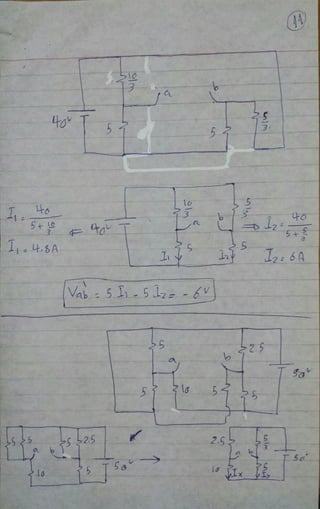 11
10/3
a
b
40v
5
5
5/3
I1 = 40/(5+10/3)
I1 = 4.8A
⇐ 40v
10/3
a
5
I1
5/3
b
5
I2
⇒ I2 = 40/(5+5/3)
I2 = 6A
Vab = 5 I1 - 5 I2 = - 6v
5
a
b
2.5
50v
5
10
5
5
5
5
a
10
5
b
2.5
5
50v
→
2.5
a
10
Ix
5/3
b
5
50v